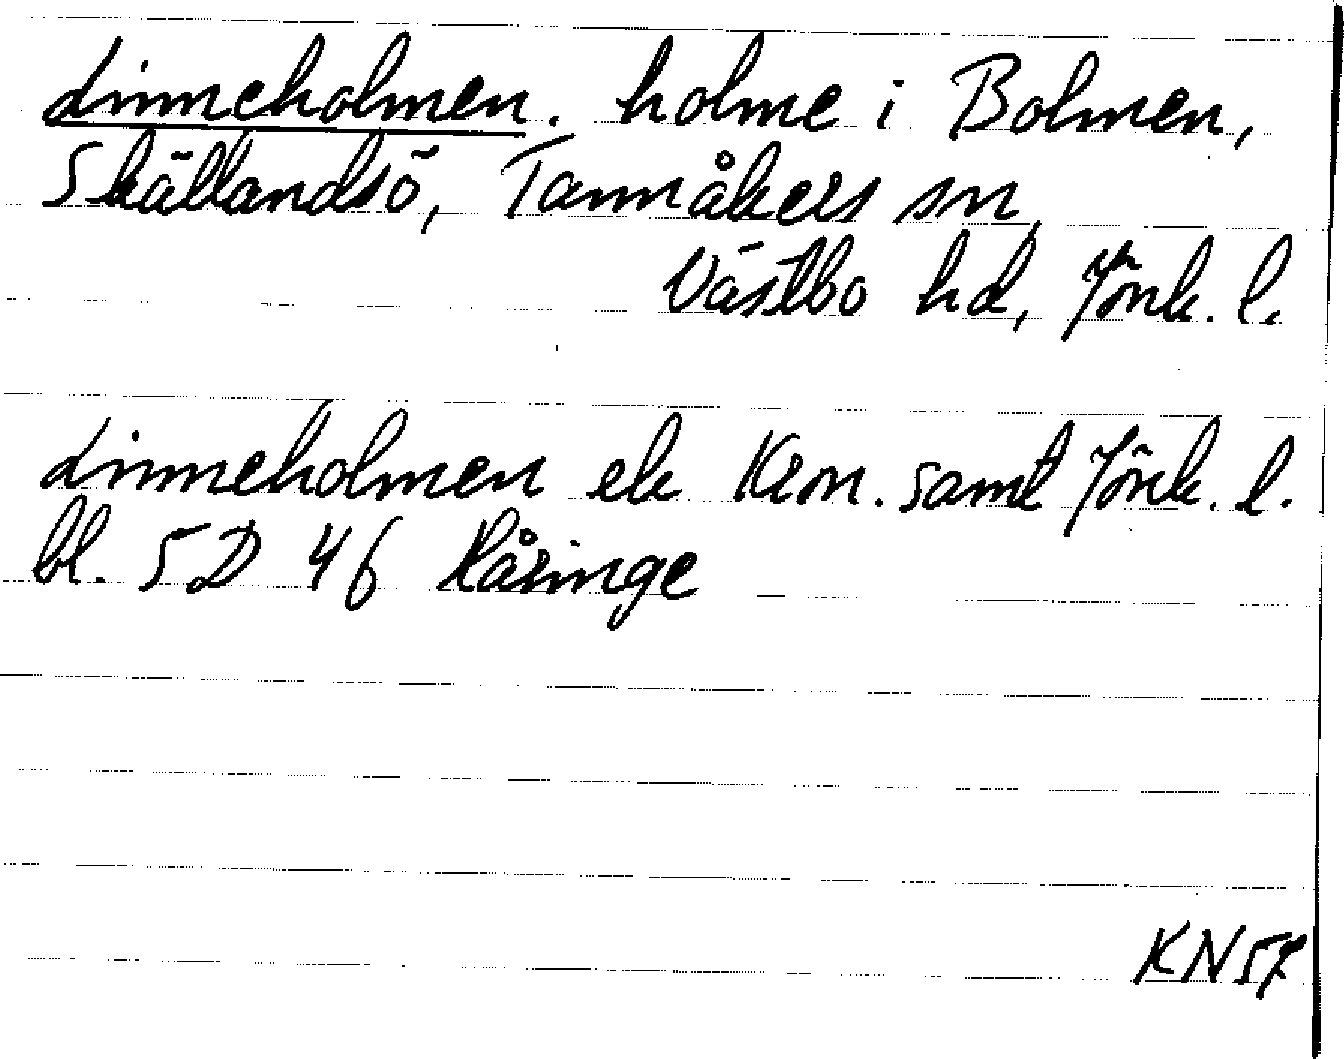 Linneholmen. holme i Bolmen,
Skällandsö, Tannåkers sn,
Västbo hd, Jönk. l.
Linneholmen ek Kron. samt Jönk. l.
bl. 5D 4f Råringe
KN57